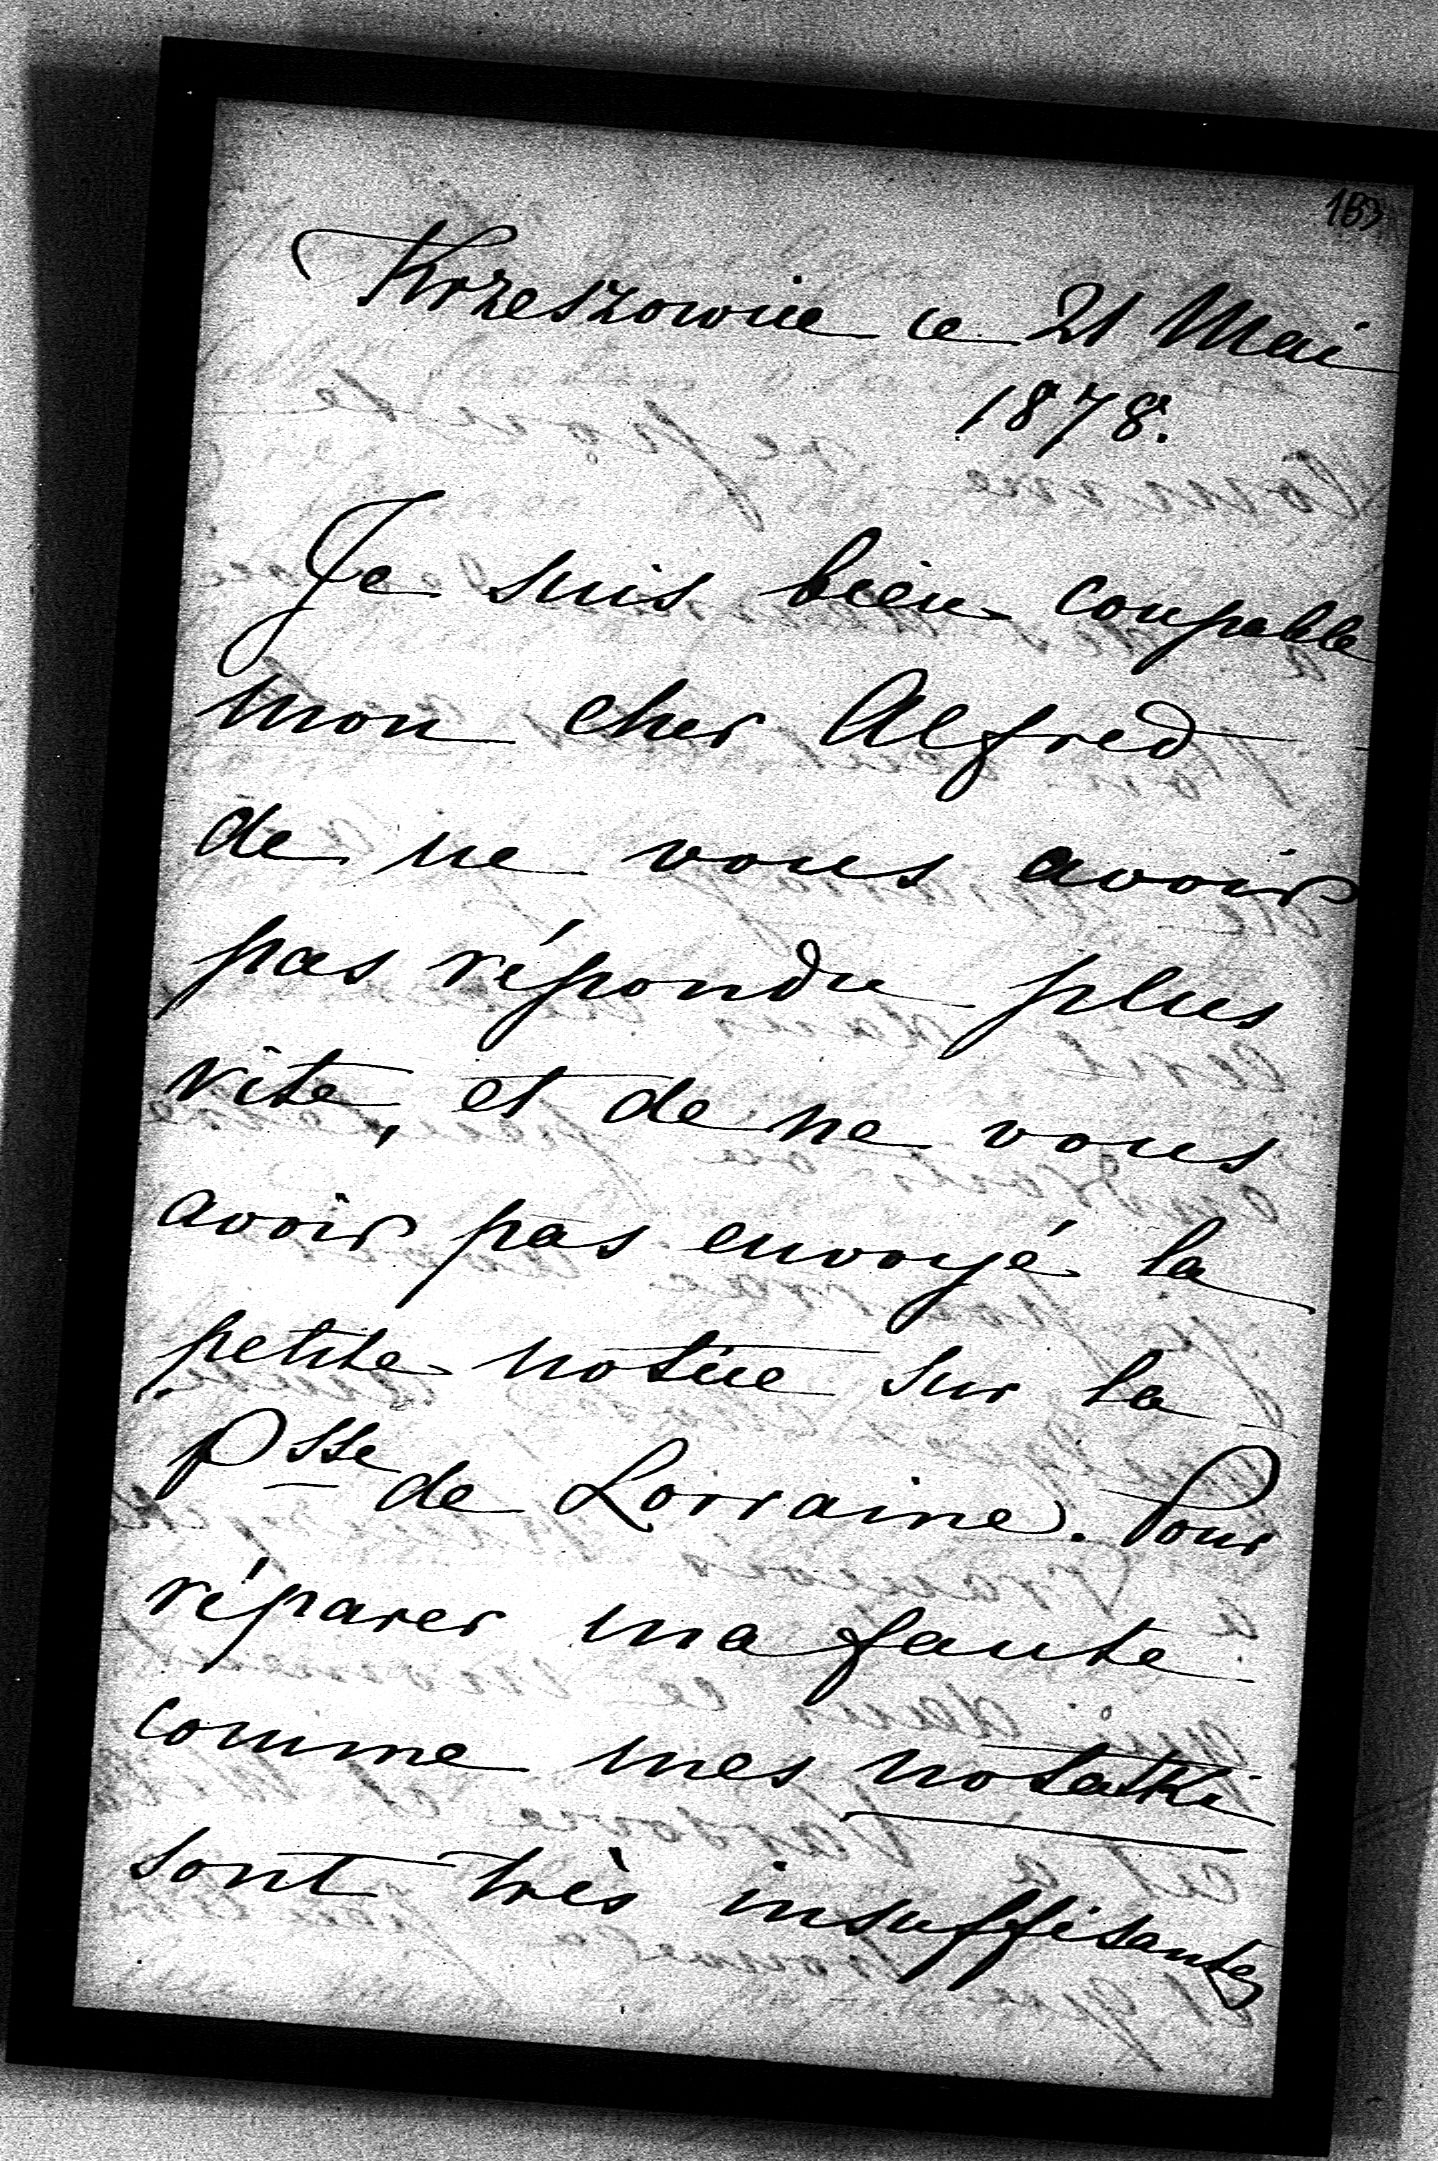 Krzeszowice ce 21 Mai
1878.
Je suis bien coupable
mon cher Alfred
de ne vous avoir
pas répondu plus
vite, et de ne vous
avoir pas envoyé la
petite notice sur la
Psse de Lorraine. Pour
réparer ma faute
comme mes notatki
sont très insuffisantes